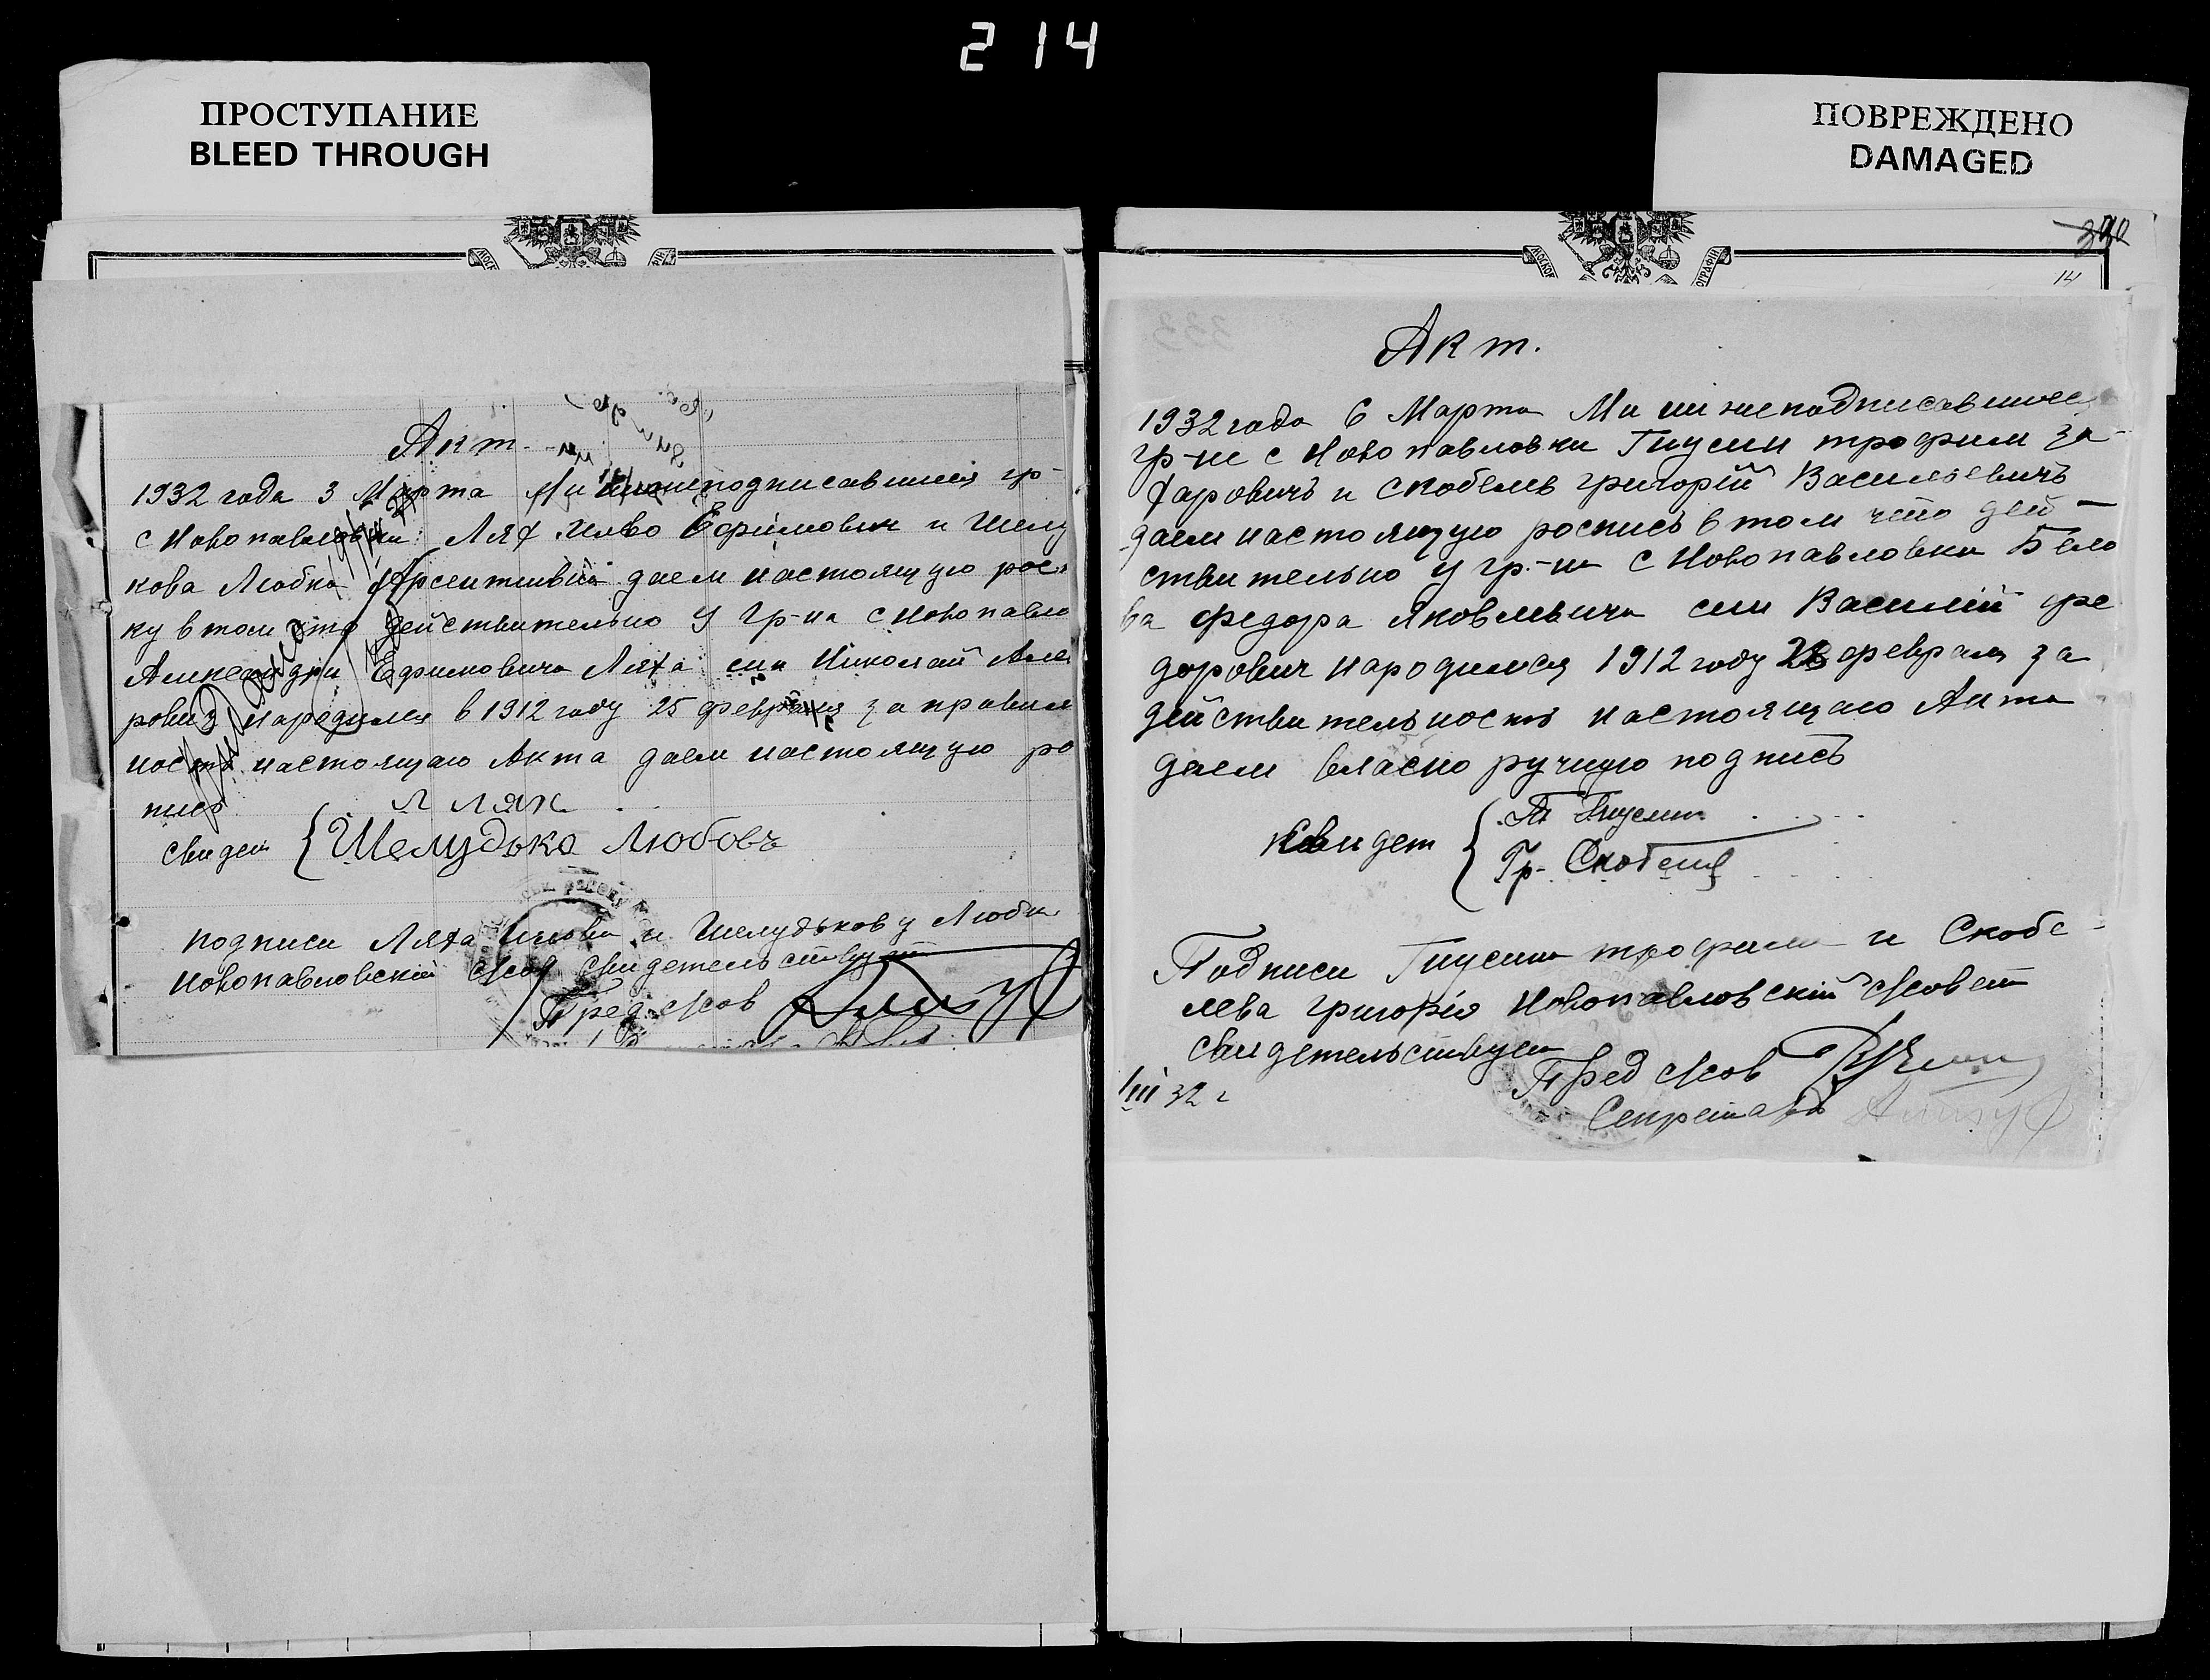 214
ПРОСТУПАНИЕ
BLEED THROUGH
ПОВРЕЖДЕНО
DAMAGED
Акт.
1932 года 3 Марта Ми нижеподписавшиеся гр-
с Новопавловки Лях Илько Ефимович и Шелу
кова Любка даем настоящую рос
ку в том что действительно У гр-на с Новопавло
Александра Ефимовича Ляха син Николай Алек
рович народился в 1912 году 25 февраля за правил
ность настоящаго Акта даем настоящую ро
пись
Л Лях
свидет { Шелудько Любовъ
подписи Ляха и Шелудькову Любк
Новопавловскій с/сов свидетельствует
Пред с/сов
390
14
Акт.
1932 года 6 Марта Ми нижеподписавшиеся
гр-не с Новопавловки Гнусин трофим за-
харовичъ и Скобелев григорій Василевичъ
даем настоящую роспись в том что дей-
ствительно у гр-на с Новопавловки Бело
ва федора Яковлевича син Василій фе
дорович народился 1912 году 28 февраля за
действительность настоящаго Акта
даем власно ручную подпись
свидет { Т Гнусин
Гр. Скобелев
Подписи Гнусина трофима и Скобе-
лева григорія Новопавловскій с/совет
свидетельствует
Пред с/сов
III 32 г
Секретарь